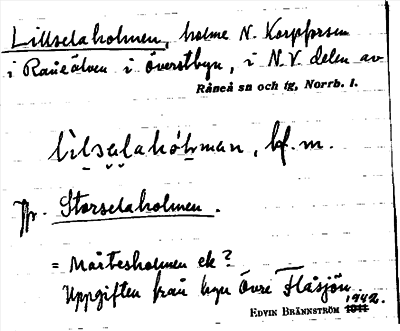 Lillselaholmen, holme N. Korpforsen
i Råneälven i överstbyn, i N.V. delen av
Råneå sn och tg, Norrb. l.
lilselahòlman, bf. m.
Jfr. Storselaholmen.
= Mårtesholmen ek?
Uppgiften från byn Övre Flåsjön
1942.
EDVIN BRÄNNSTRÖM 1941